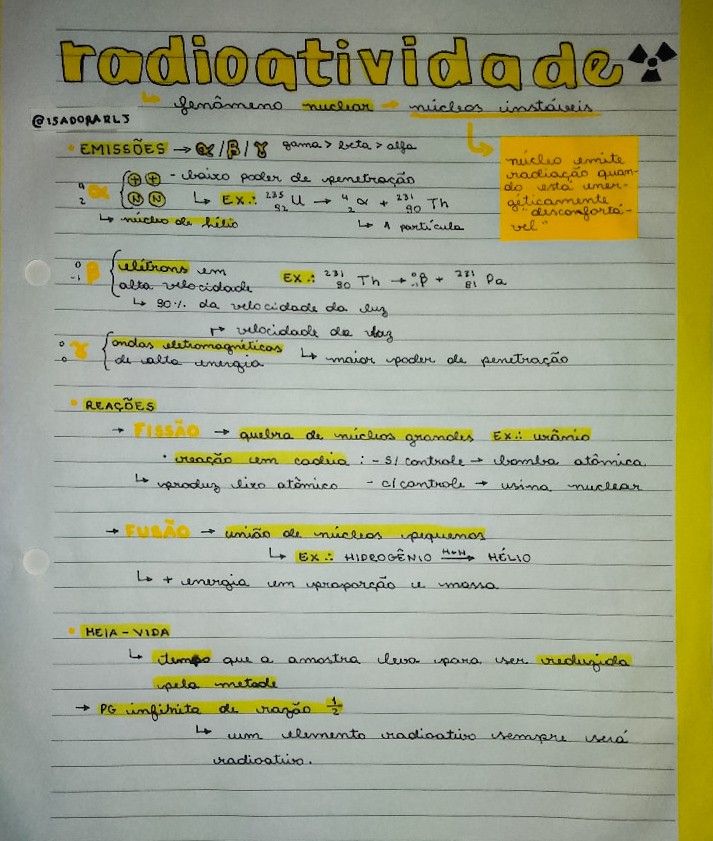 radioatividade
↳ fenômeno nuclear → núcleos instáveis
@ISADORARLS
• EMISSÕES → α/β/γ gama > beta > alfa
núcleo emite
radiação quan-
do está ener-
geticamente
"desconfortá-
vel"
⁴₂α { ⊕⊕ ⓃⓃ - baixo poder de penetração
↳ EX.: ²³⁵₉₂U → ⁴₂α + ²³¹₉₀Th
↳ núcleo de hélio
↳ 1 partícula
⁰₋₁β { elétrons em
alta velocidade
EX.: ²³¹₉₀Th → ⁰₋₁β + ²³¹₉₁Pa
↳ 90% da velocidade da luz
↱ velocidade da luz
⁰₀γ { ondas eletromagnéticas
de alta energia
↳ maior poder de penetração
• REAÇÕES
→ FISSÃO → quebra de núcleos grandes EX.: urânio
• reação em cadeia : - s/ controle → bomba atômica
↳ produz lixo atômico - c/ controle → usina nuclear
→ FUSÃO → união de núcleos pequenos
↳ EX.: HIDROGÊNIO H+H→ HÉLIO
↳ + energia em proporção a massa
• MEIA-VIDA
↳ tempo que a amostra leva para ser reduzida
pela metade
→ PG infinita de razão 1/2
↳ um elemento radioativo sempre será
radioativo.